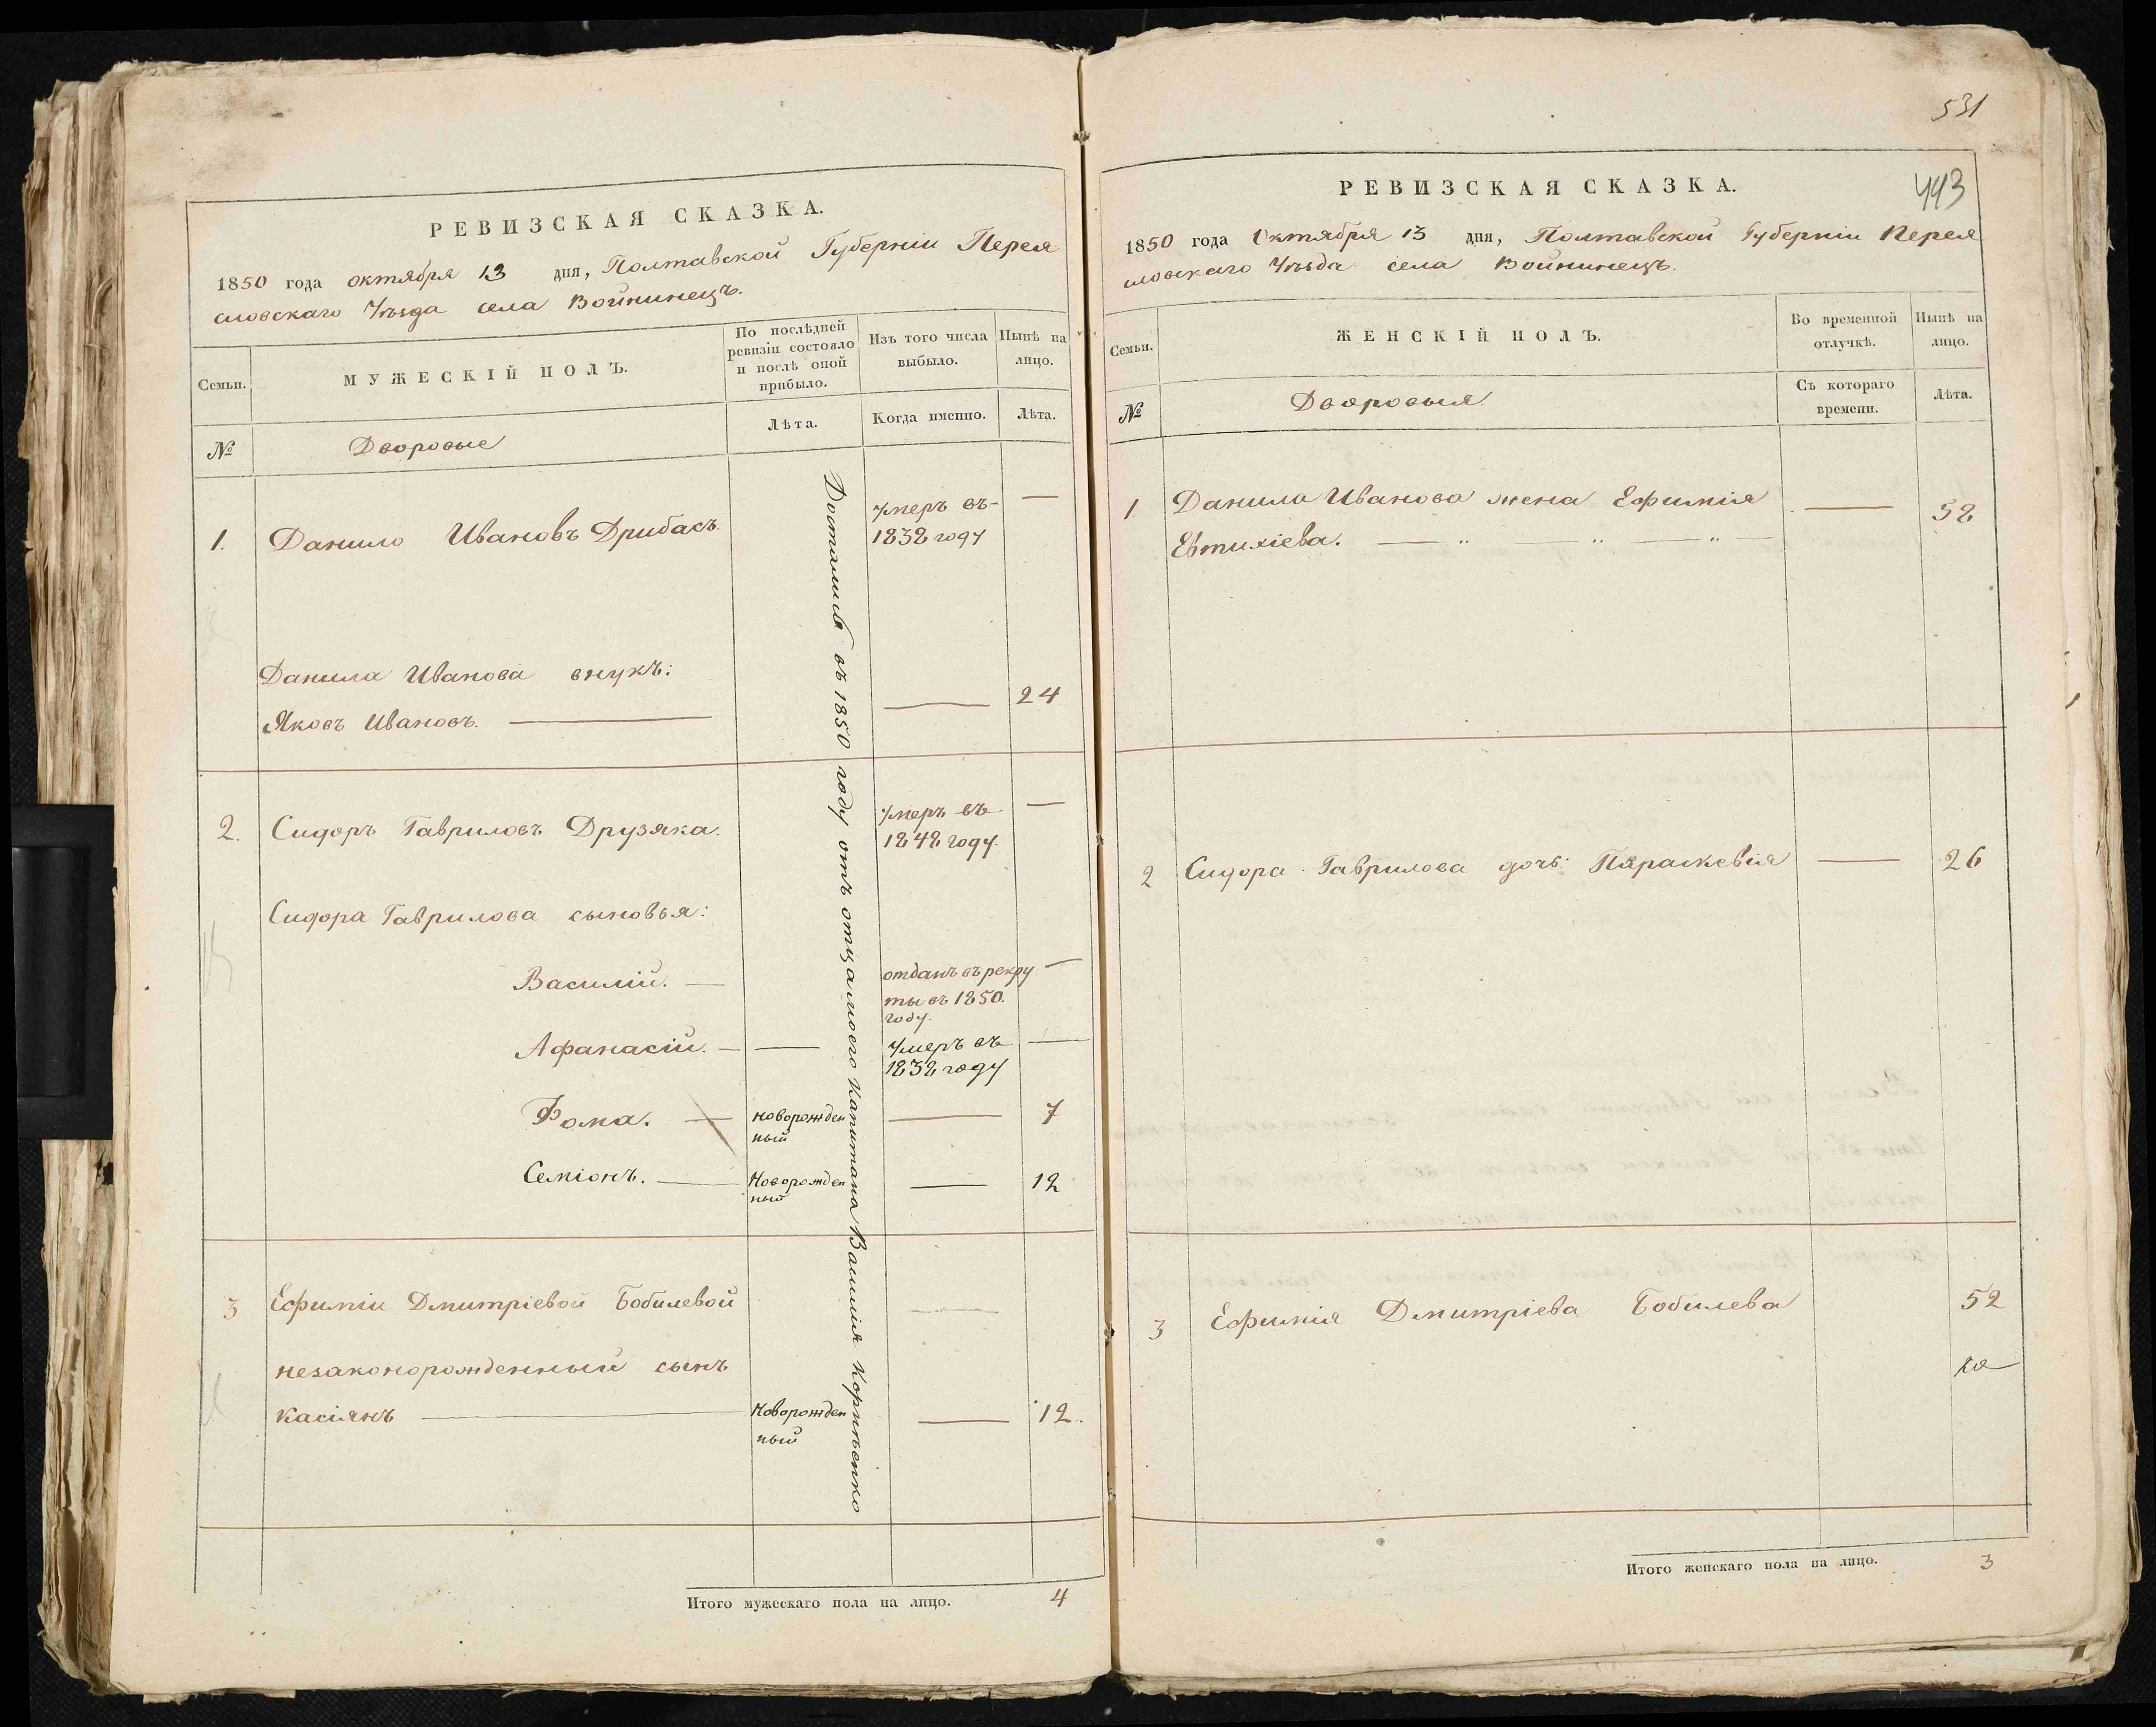 РЕВИЗСКАЯ СКАЗКА.
1850 года октября 13 дня, Полтавской Губерніи Перея
словскаго Уѣзда села Войнинецъ.
Семьи.
МУЖЕСКІЙ ПОЛЪ.
По послѣдней
ревизіи состояло
и послѣ оной
прибыло.
Изъ того числа
выбыло.
Нынѣ на
лицо.
№
Дворовые
Лѣта.
Когда именно.
Лѣта.
1. Данило Ивановъ Дрибасъ.
Умеръ въ-
1838 году
—
Данила Иванова внукъ:
Яковъ Ивановъ. — — 24
2. Сидоръ Гавриловъ Друзяка.
Умеръ въ
1848 году.
—
Сидора Гаврилова сыновья:
Василій. —
отданъ въ рекру
ты въ 1850.
году.
—
Афанасій. — —
Умеръ въ
1838 году
—
Фома. — новорожден
ный
— 7
Семіонъ. — Новорожден
ный
— 12
3 Ефиміи Дмитріевой Бобилевой
незаконорожденный сынъ
Касіянъ — Новорожден
ный
— 12.
Достались въ 1850 году отъ отца моего Капитана Василія Корнѣенко
Итого мужескаго пола на лицо. 4
531
443
РЕВИЗСКАЯ СКАЗКА.
1850 года Октября 13 дня, Полтавской Губерніи Перея
словскаго Уѣзда села Войнинецъ.
Семьи.
ЖЕНСКІЙ ПОЛЪ.
Во временной
отлучкѣ.
Нынѣ на
лицо.
№
Дворовыя.
Съ котораго
времени.
Лѣта.
1. Данила Иванова жена Ефимія — 58
Евтихіева. — „ — „ — „ —
2 Сидора Гаврилова дочь: Параскевія — 26
3 Ефимія Дмитріева Бобилева 52
Итого женскаго пола на лицо. 3